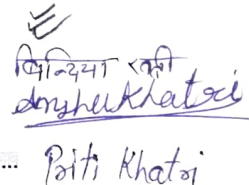 बिन्दिया खत्री
Anshu Khatri
... Priti Khatri